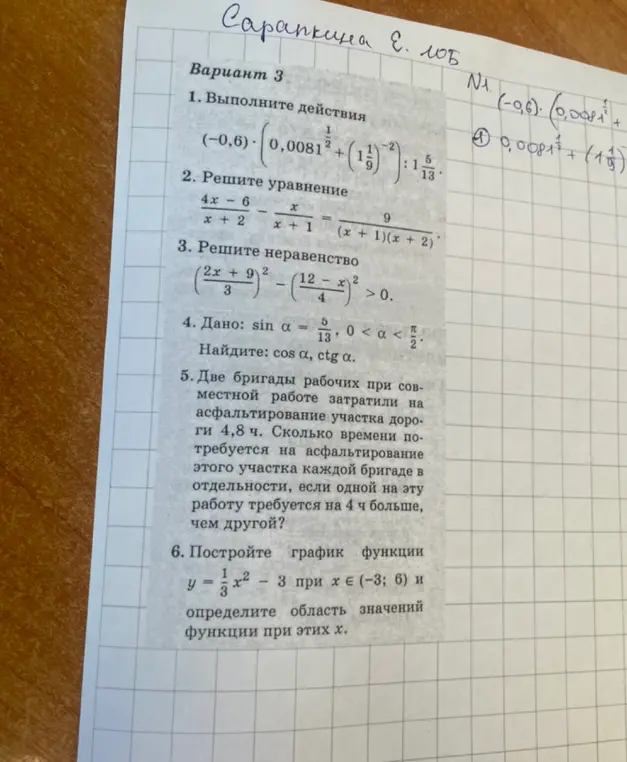 Сарапкина Е. 10Б
Вариант 3
1. Выполните действия
(−0,6) · (0,0081^{1/2} + (1 1/9)^{−2}) : 1 5/13.
2. Решите уравнение
(4x − 6)/(x + 2) − x/(x + 1) = 9/((x + 1)(x + 2)).
3. Решите неравенство
((2x + 9)/3)^2 − ((12 − x)/4)^2 > 0.
4. Дано: sin α = 5/13, 0 < α < π/2.
Найдите: cos α, ctg α.
5. Две бригады рабочих при сов-
местной работе затратили на
асфальтирование участка доро-
ги 4,8 ч. Сколько времени по-
требуется на асфальтирование
этого участка каждой бригаде в
отдельности, если одной на эту
работу требуется на 4 ч больше,
чем другой?
6. Постройте график функции
y = 1/3 x^2 − 3 при x ∈ (−3; 6) и
определите область значений
функции при этих x.
N1.
(−0,6) · (0,0081^{1/2} +
① 0,0081^{1/2} + (1 1/9)